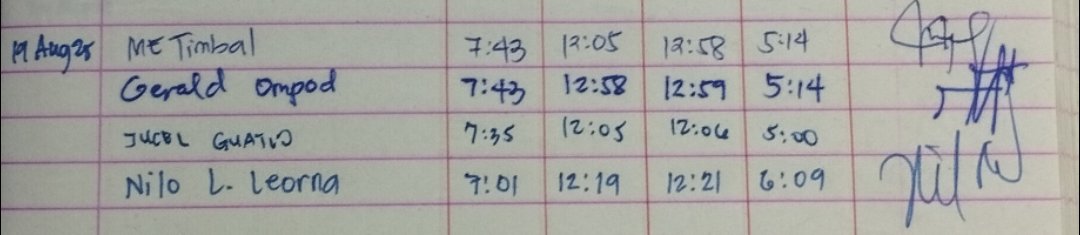 19 Aug 25 ME Timbal 7:43 12:05 12:58 5:14
Gerald Ompod 7:43 12:58 12:59 5:14
JUCEL GUATNO 7:35 12:05 12:06 5:00
Nilo L. Leorna 7:01 12:19 12:21 6:09